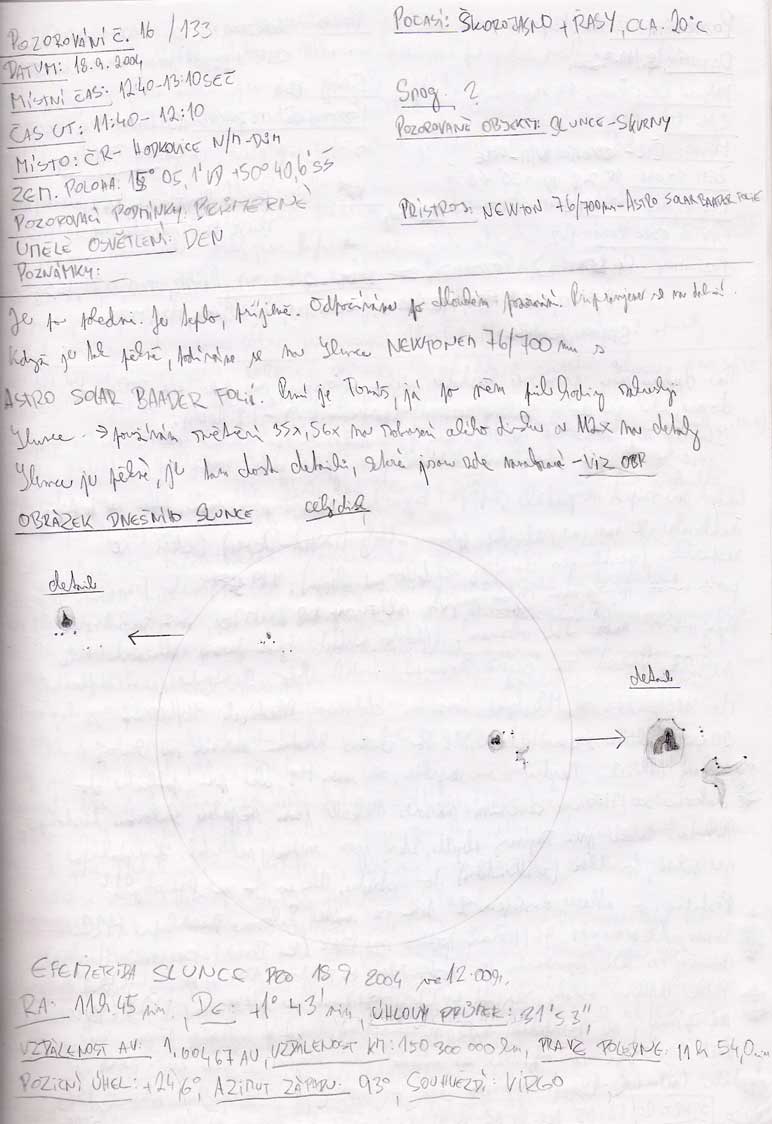 POZOROVÁNÍ Č. 16 /133
DATUM: 18.9. 2004
MÍSTNÍ ČAS: 12:40-13:10 SEČ
ČAS UT: 11:40 - 12:10
MÍSTO: ČR- HODKOVICE N/M-DŮM
ZEM. POLOHA: 15° 05,1' VD +50° 40,6' SŠ
POZOROVACÍ PODMÍNKY: PRŮMĚRNÉ
UMĚLÉ OSVĚTLENÍ: DEN
POZNÁMKY:
POČASÍ: SKOROJASNO + ŘASY, CCA. 20°C
Snog. ?
POZOROVANÉ OBJEKTY: SLUNCE-SKVRNY
PŘÍSTROJ: NEWTON 76/700mm-ASTRO SOLAR BAADER FOLIE
Je po poledni. Je teplo, příjemně. Odpočíváme po dlouhém pozorování. Připravujeme se na další.
Když je tak pěkně, podíváme se na Slunce NEWTONEM 76/700 mm s
ASTRO SOLAR BAADER FOLIÍ. První je Tomáš, já po něm půl hodiny
Slunce. → používám zvětšení 35x, 56x na celého disku a 112x na detaily
Slunce je pěkné, je tam dost detailů, které jsou zde - VIZ OBR
OBRÁZEK DNEŠNÍHO SLUNCE celý disk
detail
detail
EFEMERIDA SLUNCE PRO 18 9 2004 ve 12:00h.
RA: 11h 45 min, DE: +1° 43' min, ÚHLOVÝ PRŮMĚR: 31'53",
VZDÁLENOST AU: 1,00467 AU, VZDÁLENOST KM: 150 300 000 km, PRAVÉ POLEDNE: 11h 54,0 min
POZIČNÍ ÚHEL: +24,6°, AZIMUT ZÁPADU: 93°, SOUHVĚZDÍ: VIRGO